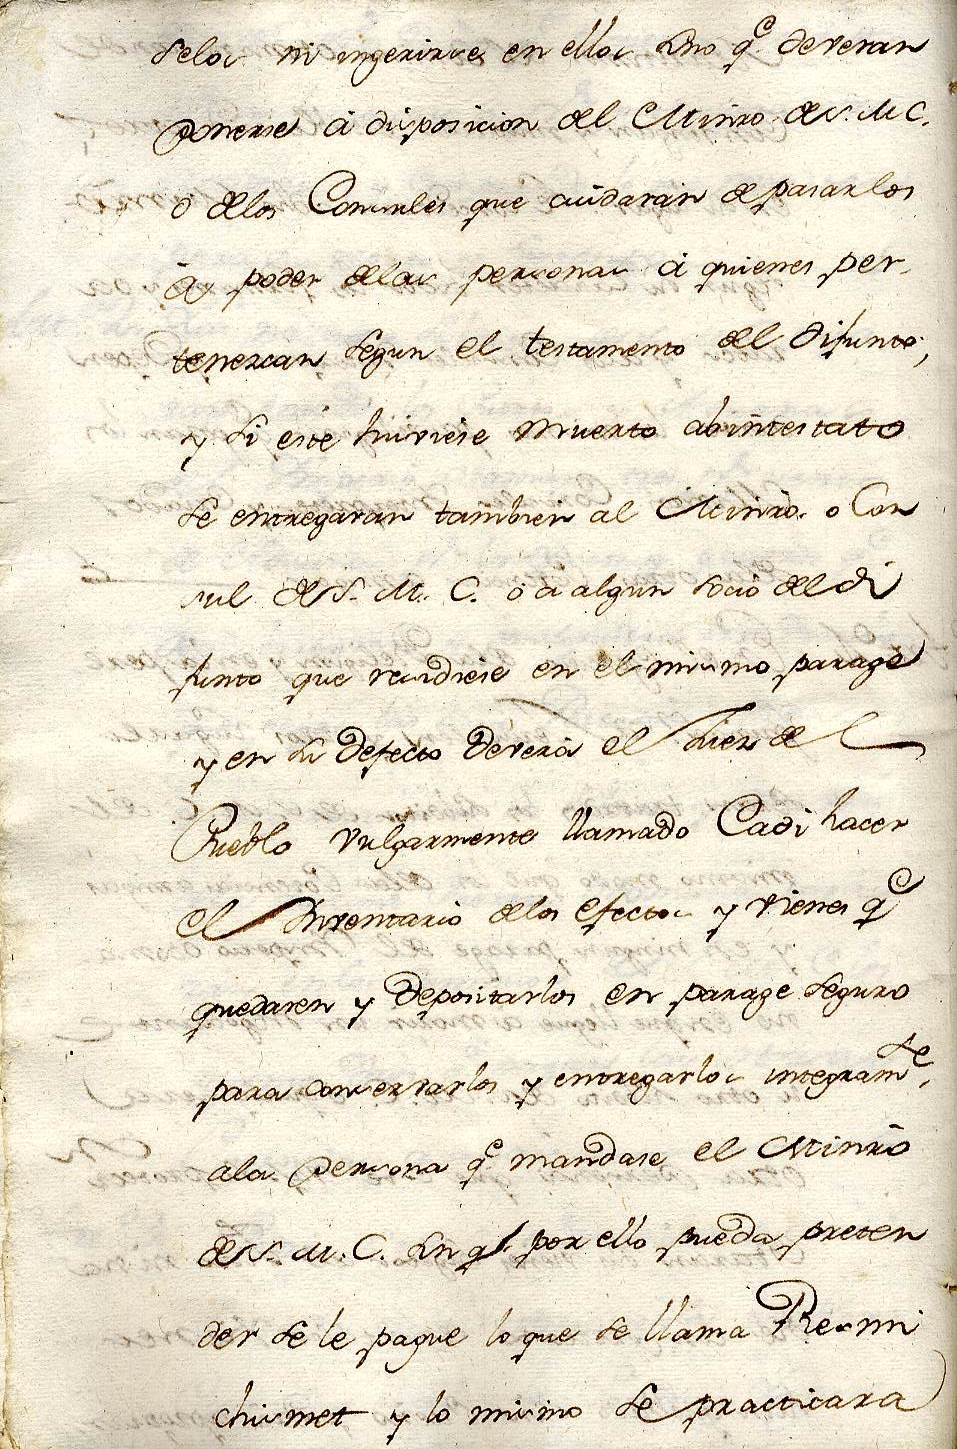 selos ni ingerirse en ellos sino q.e deveran
ponerse à disposicion del Minro. de S. M. C.
o de los Consules que cuidaràn de pasarlos
à poder de las personas à quienes per-
tenezcan segun el testamento del difunto,
y si este huviese muerto abintestato
se entregaràn tambien al Minro. o Con
sul de S. M. C. ò à algun socio del di
funto que residiese en el mismo parage
y en su defecto deverà el Juez del
Pueblo vulgarmente llamado Cadi hacer
el Inventario de los efectos y vienes q.e
quedaren y depositarlos en parage seguro
para conservarlos y entregarlos integram.te
a la persona q.e mandase el Minro
de S. M. C. sin q.e por ello pueda preten
der se le pague lo que se llama Resmi
chismet y lo mismo se practicara